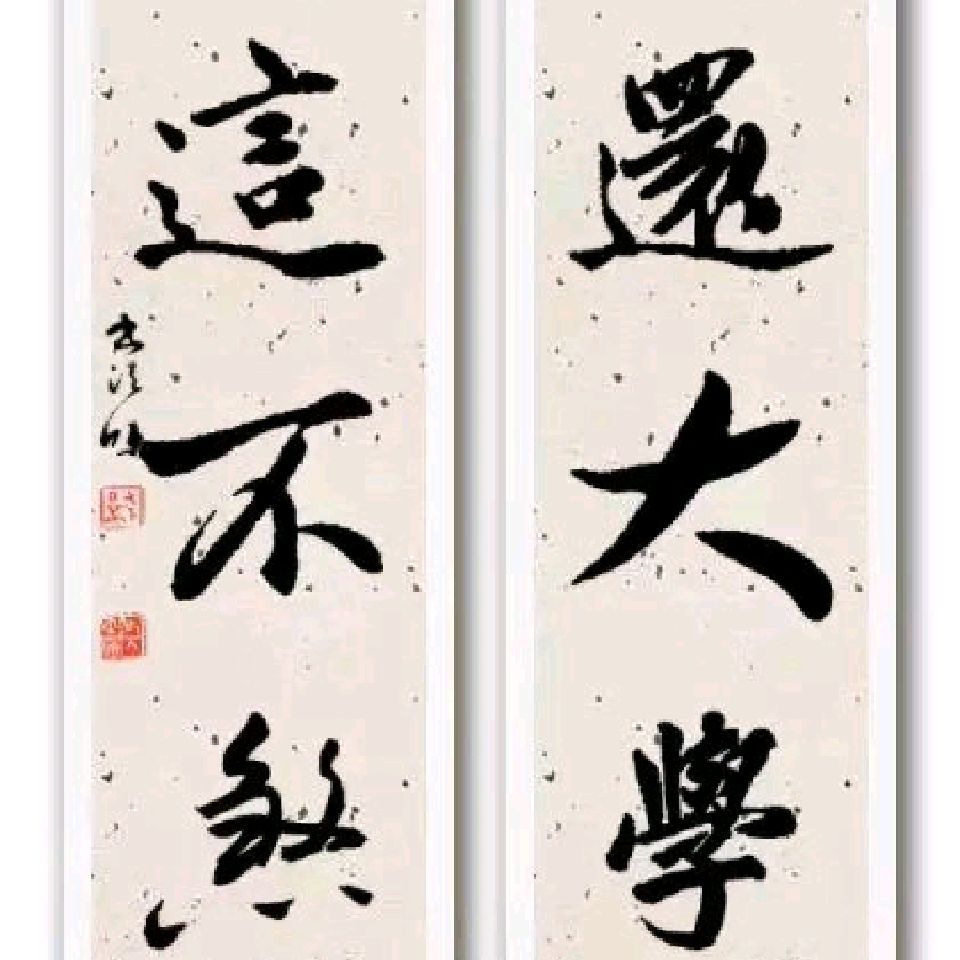 還大學
這不煞